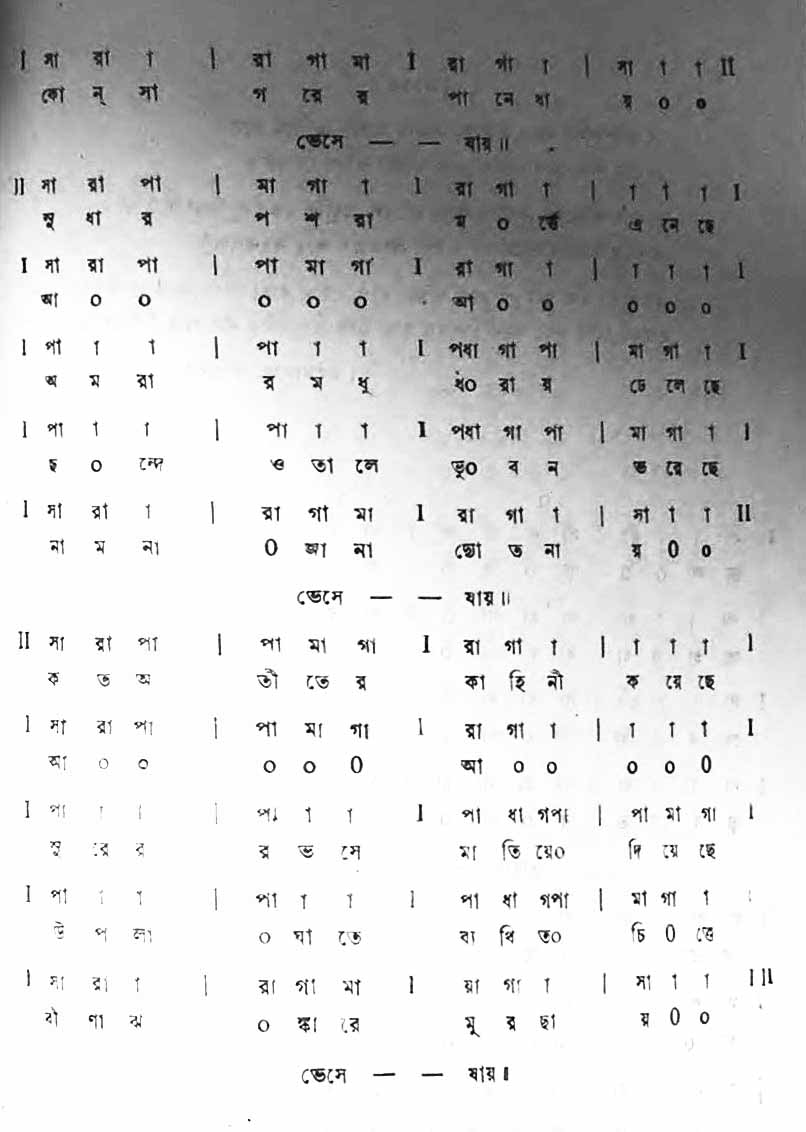 I সা রা া | রা গা মা I রা গা া | সা া া II
কো ন্ সা গ রে র পা নে ধা য় ০ ০
ভেসে — — যায়॥
II সা রা পা | মা গা া I রা গা া | া া া I
সু ধা র প শ রা ম ০ র্ত্তে এ নে ছে
I সা রা পা | পা মা গা I রা গা া | া া া I
আ ০ ০ ০ ০ ০ আ ০ ০ ০ ০ ০
I পা া া | পা া া I পধা গা পা | মা গা া I
অ ম রা র ম ধু ধ০ রা য় ঢে লে ছে
I পা া া | পা া া I পধা গা পা | মা গা া I
ছ ০ ন্দে ও তা লে ভু০ ব ন ভ রে ছে
I সা রা া | রা গা মা I রা গা া | সা া া II
না ম না ০ জা না দ্যো ত না য় ০ ০
ভেসে — — যায়॥
II সা রা পা | পা মা গা I রা গা া | া া া I
ক ত অ তী তে র কা হি নী ক য়ে ছে
I সা রা পা | পা মা গা I রা গা া | া া া I
আ ০ ০ ০ ০ ০ আ ০ ০ ০ ০ ০
I পা া া | পা া া I পা ধা গপা | পা মা গা I
সু রে র র ভ সে মা তি য়ে০ দি য়ে ছে
I পা া া | পা া া I পা ধা গপা | মা গা া I
উ প লা ০ ঘা তে ব্য থি ত০ চি ০ ত্তে
I সা রা া | রা গা মা I য়া গা া | সা া া III
বী ণা ঝ ০ ঙ্কা রে মূ র ছা য় ০ ০
ভেসে — — যায়।